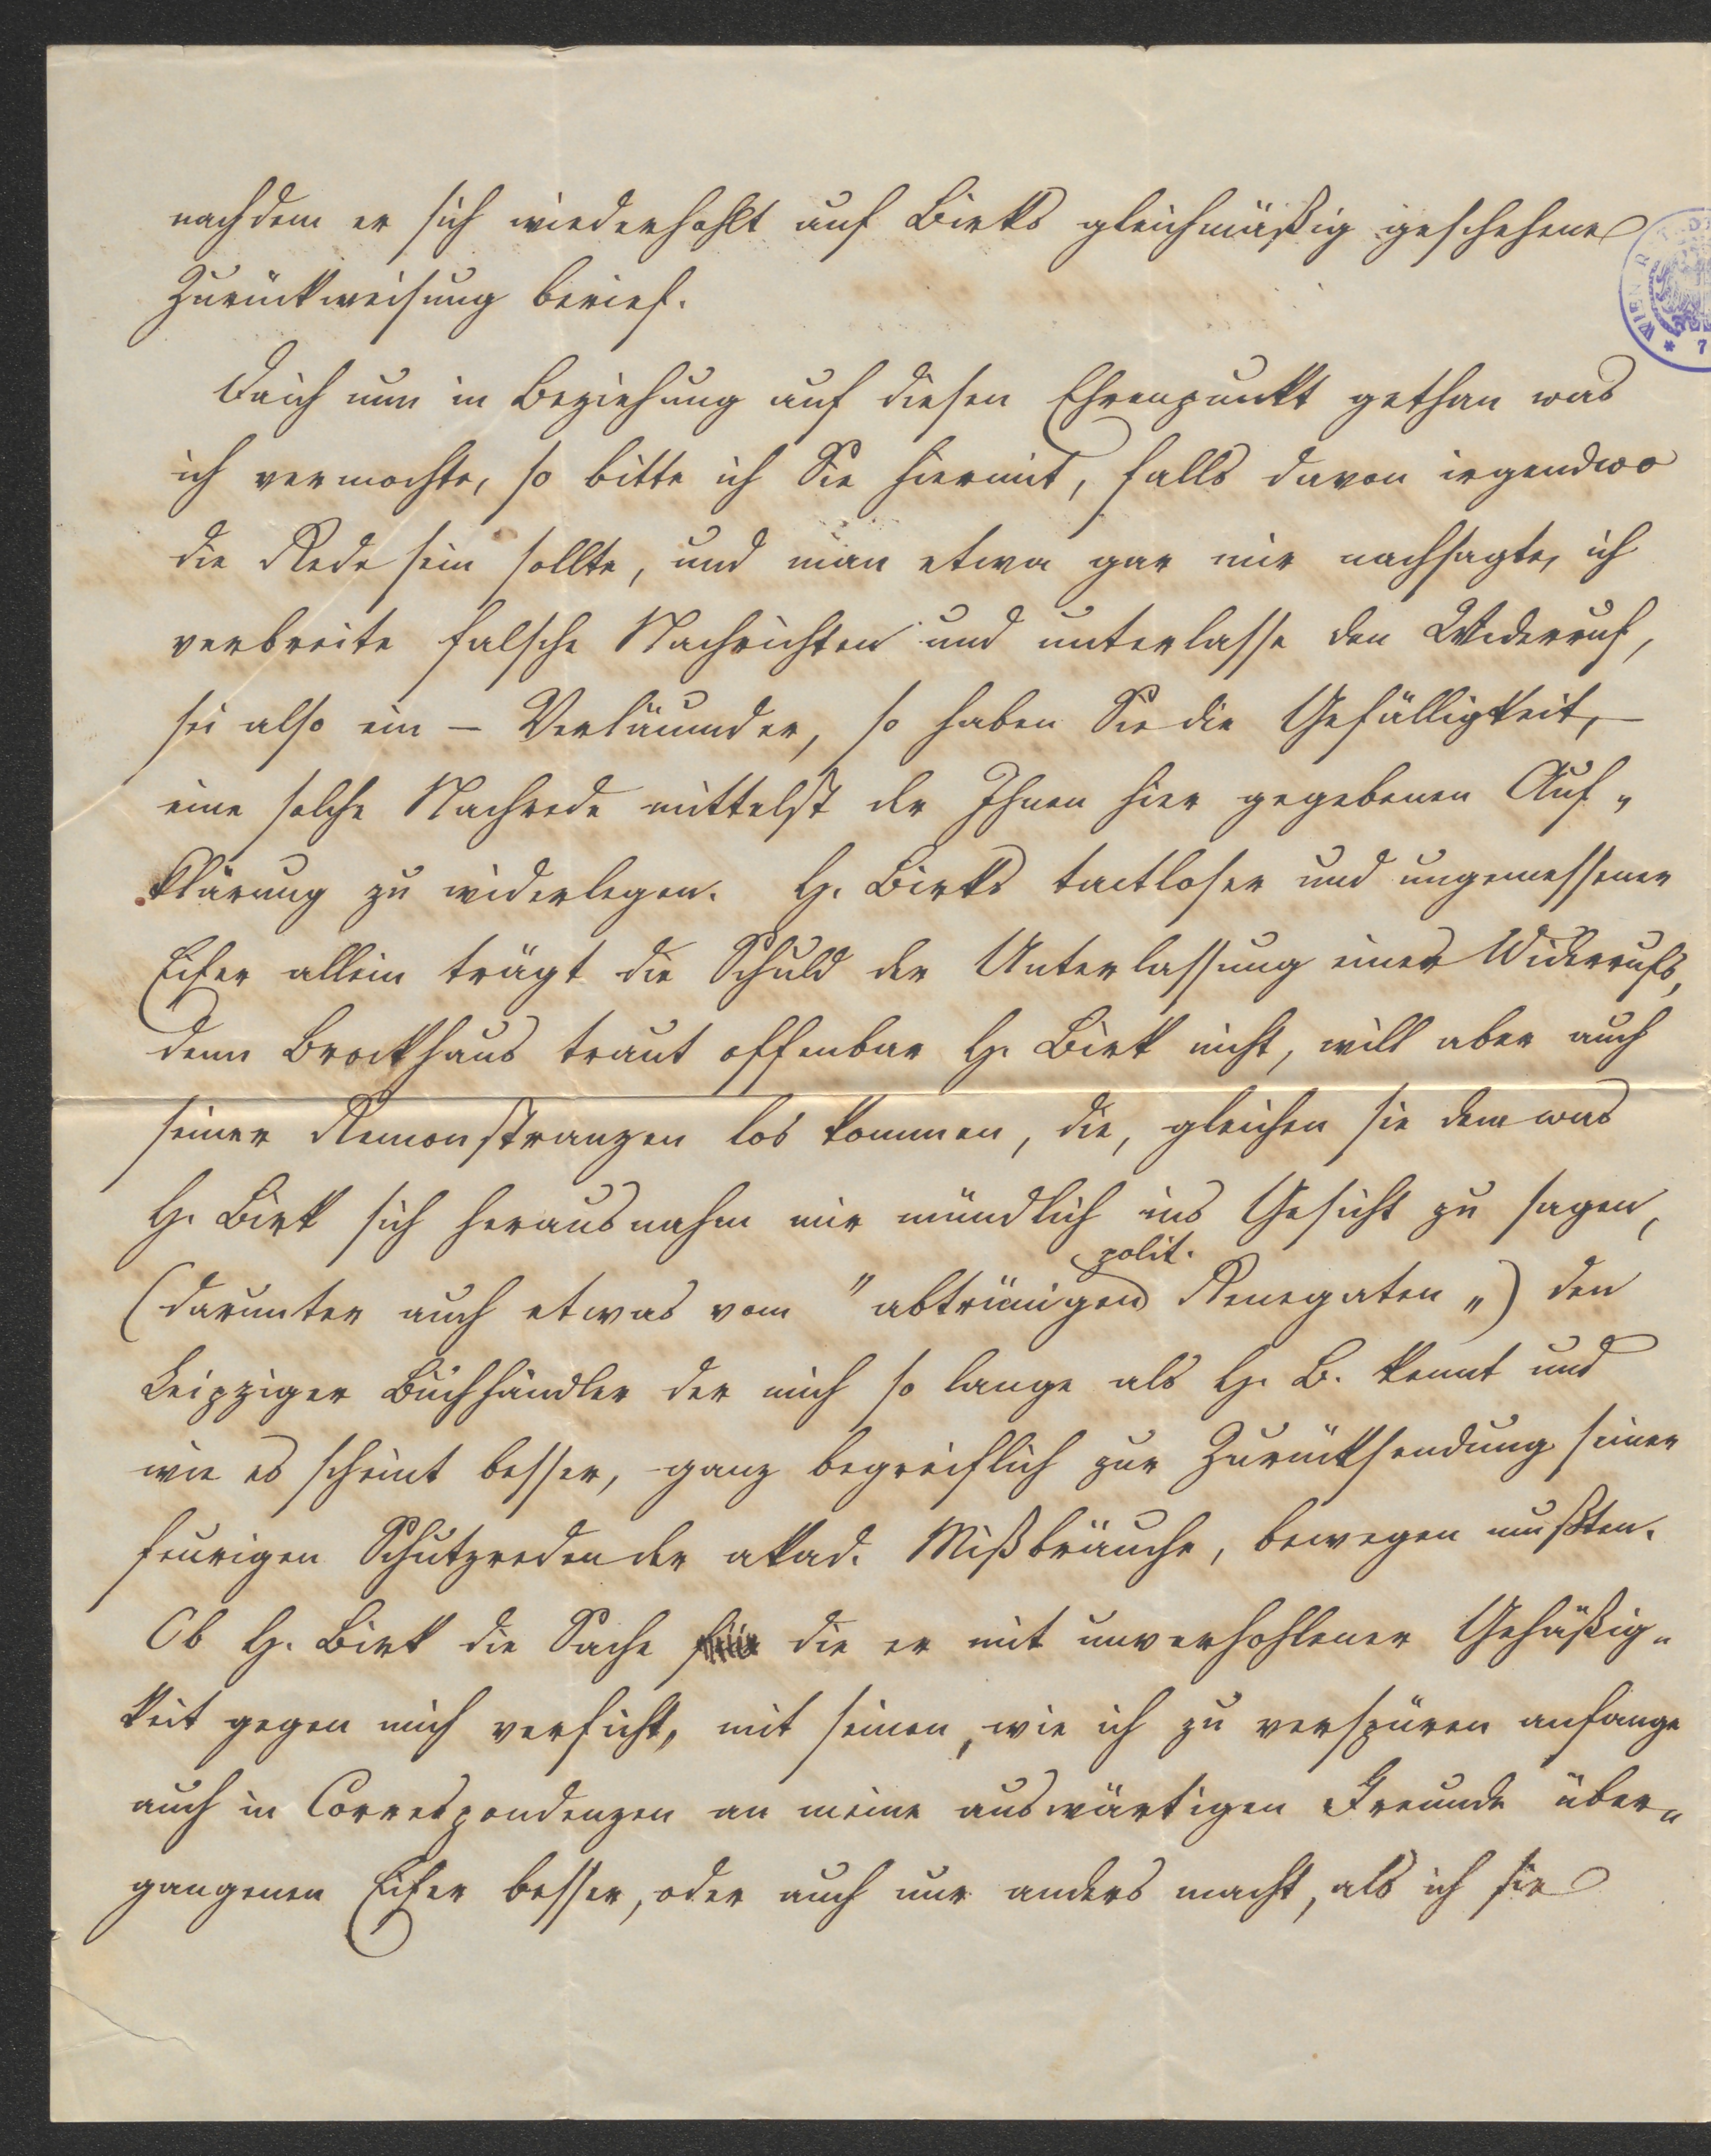 nachdem er sich wiederhohlt auf Birks gleichmäßig geschehene
Zurückweisung berief.
Da ich nun in Beziehung auf diesen Ehrenpunkt gethan was
ich vermochte, so bitte ich Sie hiermit, falls davon irgendwo
die Rede sein sollte, und man etwa gar mir nachsagte, ich
verbreite falsche Nachrichten und unterlasse den Widerruf,
sei also ein – Verläumder, so haben Sie die Gefälligkeit, –
eine solche Nachrede mittelst der Ihnen hier gegebenen Auf„
klärung zu widerlegen. H. Birks tactloser und ungemessener
Eifer allein trägt die Schuld der Unterlassung eines Widerrufs,
denn Brockhaus traut offenbar H. Birk nicht, will aber auch
seiner Remonstranzen los kommen, die, gleichen sie dem was
H. Birk sich herausnahm mir mündlich ins Gesicht zu sagen,
polit.
(darunter auch etwas vom "abtrünigen Renegaten„) den
Leipziger Buchhändler der mich so lange als H. B. kennt und
wie es scheint besser, ganz begreiflich zur Zurücksendung seiner
feurigen Schutzreden der akad. Mißbräuche, bewegen mußten.
Ob H. Birk die Sache die er mit unverhohlener Gehäßig„
keit gegen mich verficht, mit seinen, wie ich zu verspüren anfange
auch in Correspondenzen an meine auswärtigen Freunde über„
gangenen Eifer besser, oder auch nur anders macht, als ich sie
WIENER STADT
* 7